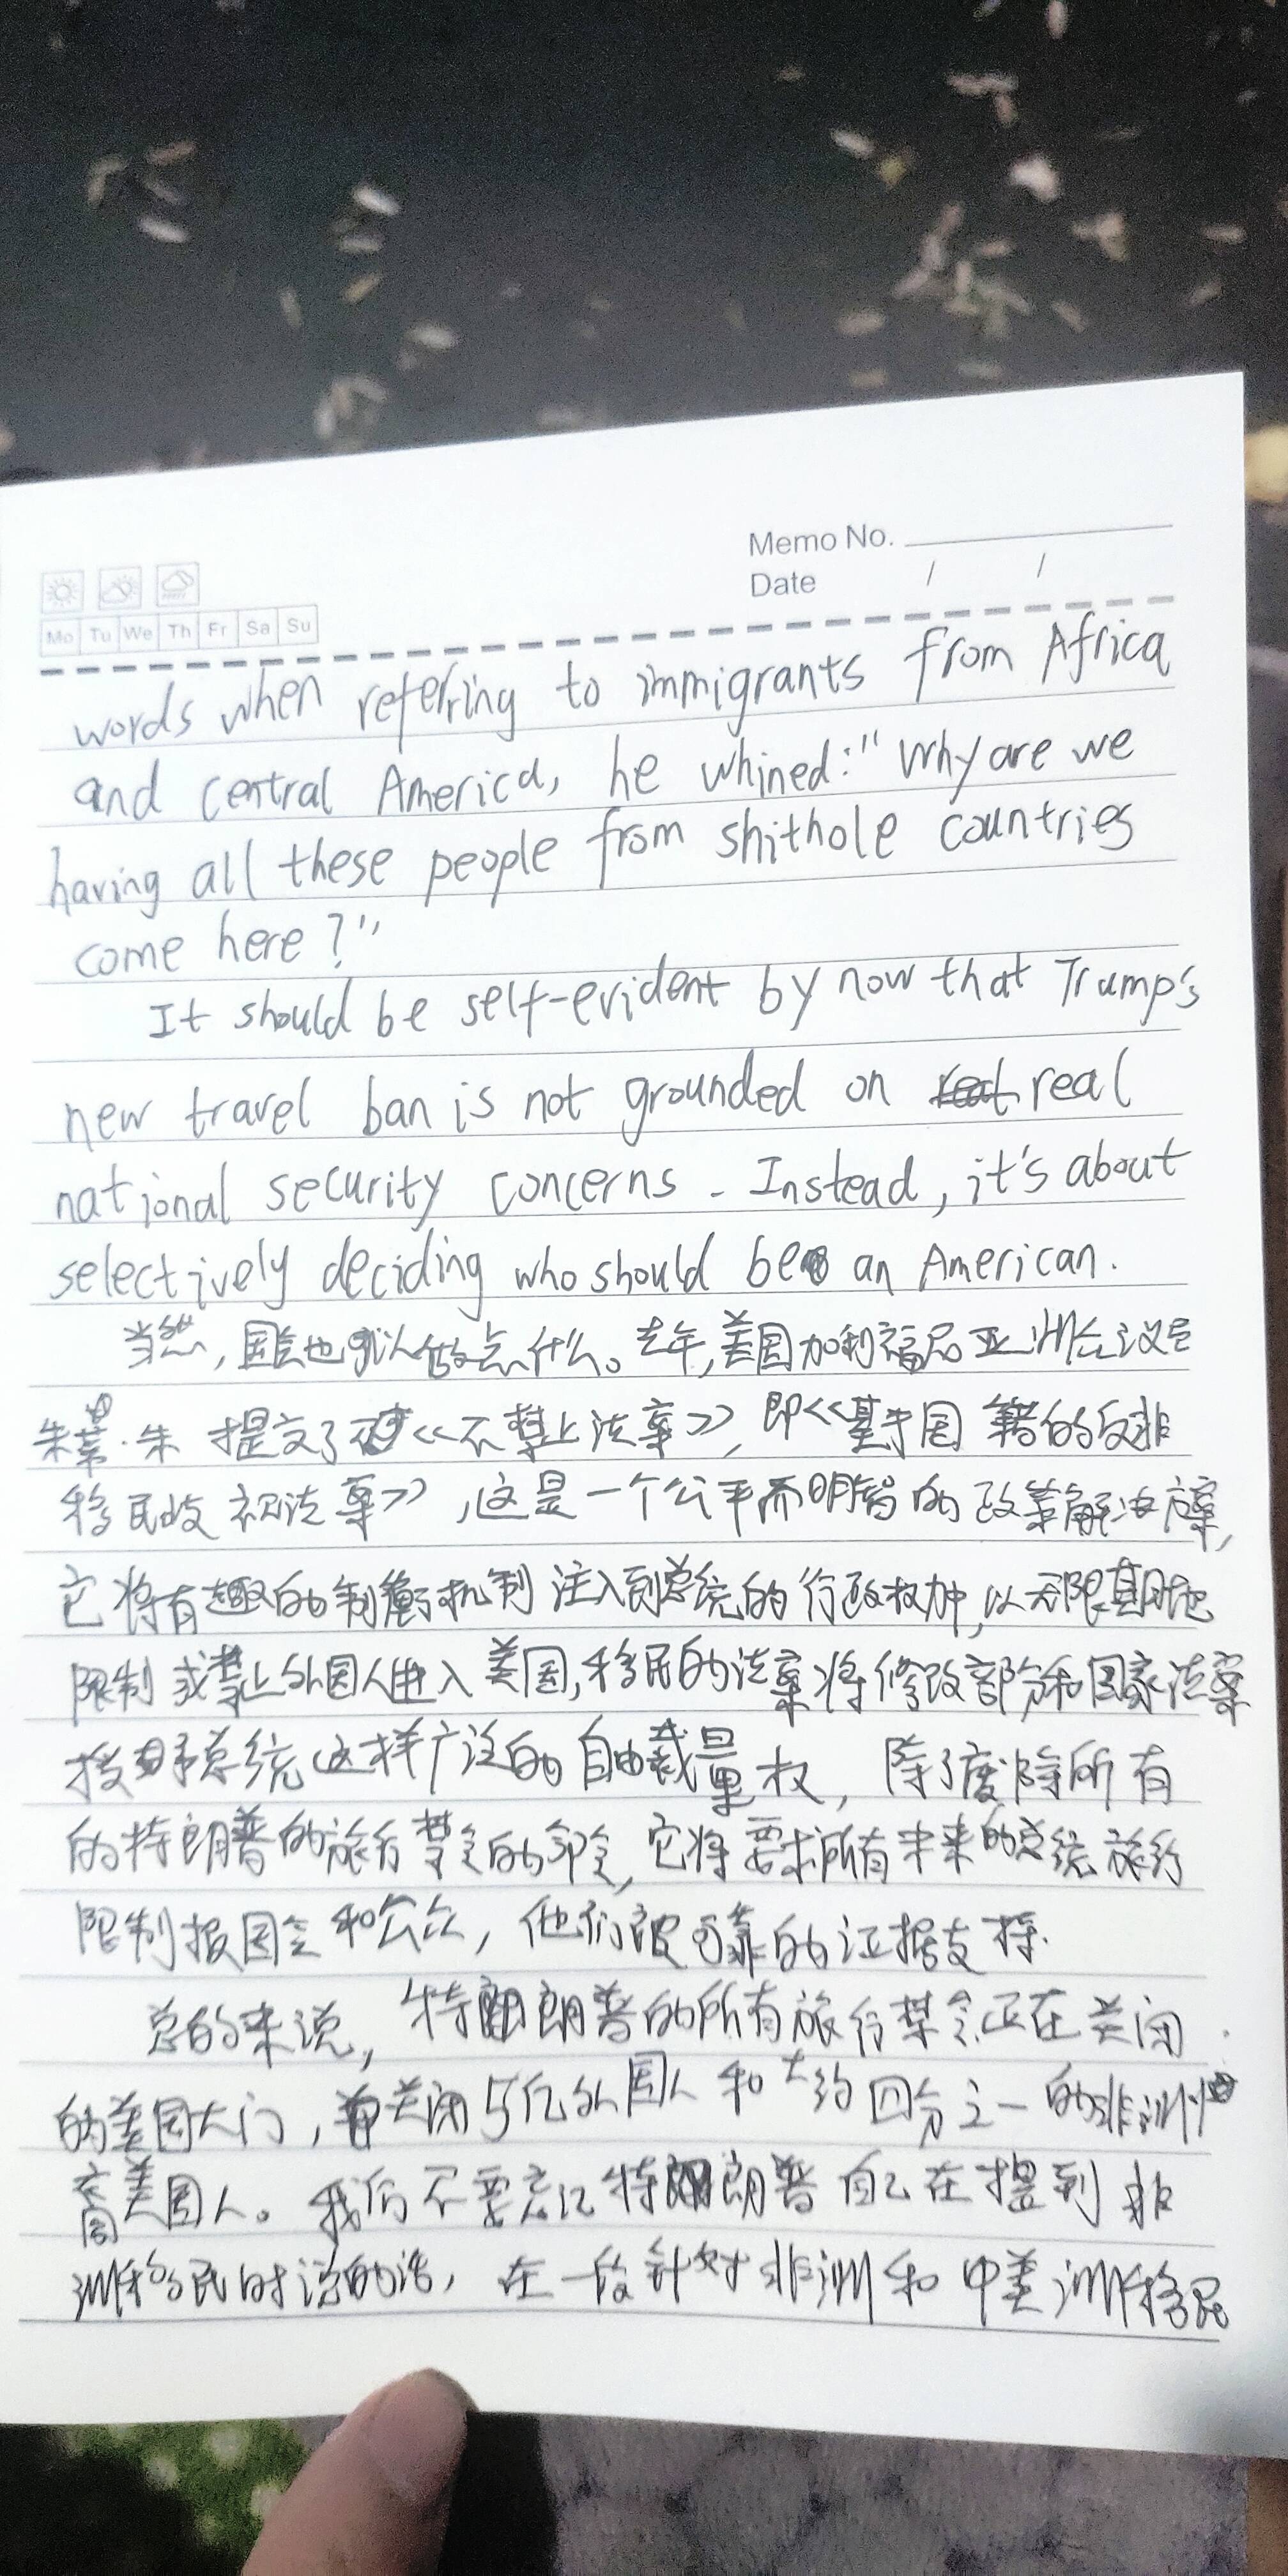 Memo No.
Date / /
Mo Tu We Th Fr Sa Su
words when referring to immigrants from Africa
and central America, he whined:" Why are we
having all these people from shithole countries
come here?"
It should be self-evident by now that Trump's
new travel ban is not grounded on real
national security concerns. Instead, it's about
selectively deciding who should be an American.
当然,国会也可以做点什么。去年,美国加利福尼亚州会议员
朱·朱 提交了《不禁止法案》,即《基于国籍的反非
移民歧视法案》,这是一个公平而明智的政策解决方案,
它将有趣的制衡机制注入到总统的行政权中,以无限期地
限制或禁止外国人进入美国,移民的法案将修改部分和国家法案
授予总统这样广泛的自由裁量权,除了废除所有
的特朗普的旅行禁令的命令,它将要求所有未来的总统旅行
限制报国会和公众,他们被可靠的证据支持.
总的来说,特朗普的所有旅行禁令正在关闭
的美国大门,关闭5亿外国人和大约四分之一的非洲
裔美国人。我们不要忘记特朗普自己在提到非
洲移民时说的话,在一段针对非洲和中美洲移民